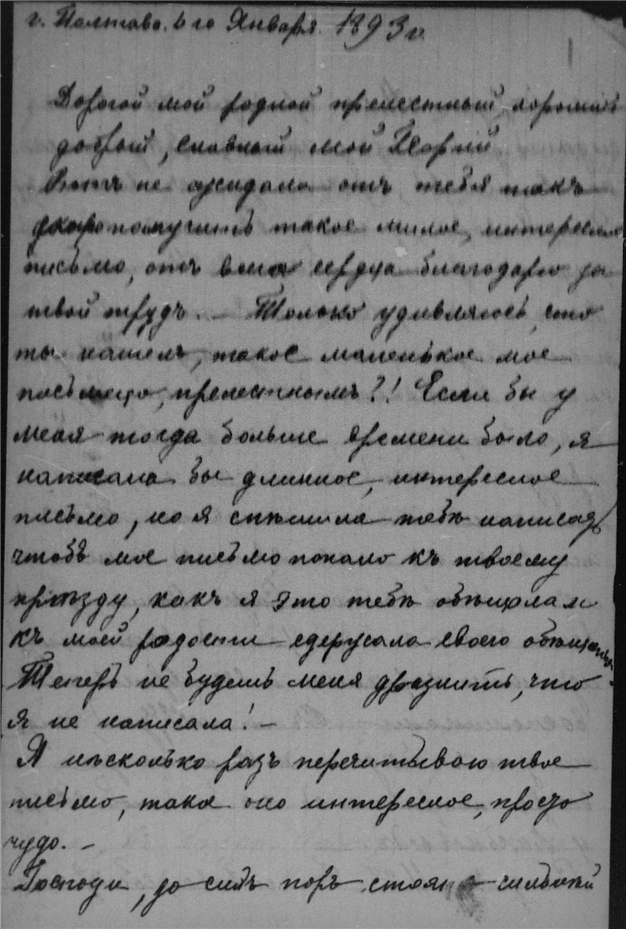 г. Полтава. 6го Января. 1893 г.
Дорогой мой родной прелестный, хороший
добрый, славный мой
не ожидала отъ тебя такъ
скоро получить такое милое, интересное
письмо, отъ всего сердца благодарю за
твой трудъ. – Только удивляюсь, что
ты нашелъ, такое маленькое мое
письмецо, прелестнымъ?! Если бы у
меня тогда больше времени было, я
написала бы длинное, интересное
письмо, но я спѣшила тебѣ написать
чтобъ мое письмо попало къ твоему
приѣзду, какъ я это тебѣ обѣщала и
къ моей радости сдержала своего
Теперь не будешь меня дразнить, что
я не написала! –
Я нѣсколько разъ перечитываю твое
письмо, такое оно интересное, просто
чудо. –
Господи, до сихъ поръ